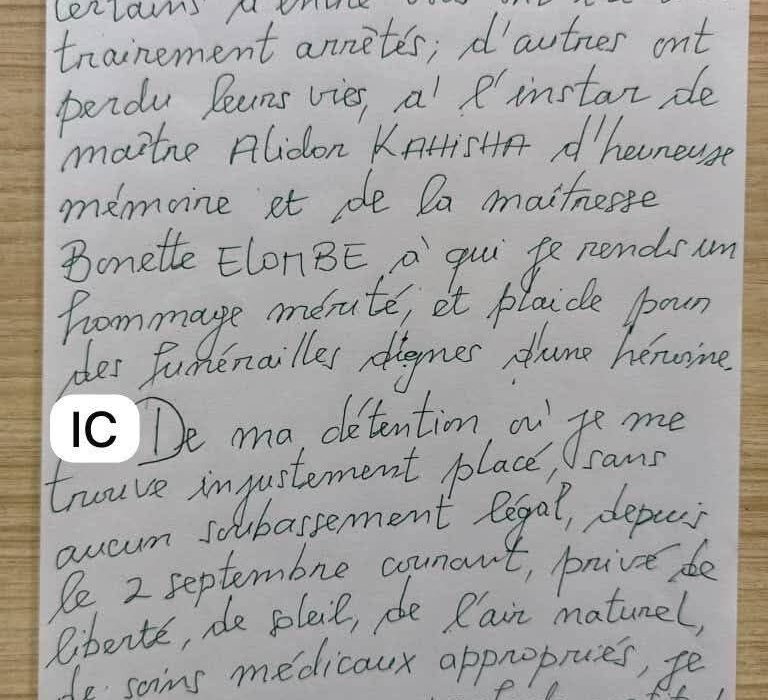 certains d'entre vous ont été
trairement arrêtés; d'autres ont
perdu leurs vies, à l'instar de
maître Alidor KAHISHA d'heureuse
mémoire et de la maîtresse
Bonette ELOMBE à qui je rends un
hommage mérité, et plaide pour
des funérailles dignes d'une héroine.
IC De ma détention où je me
trouve injustement placé, sans
aucun soubassement légal, depuis
le 2 septembre courant, privé de
liberté, de soleil, de l'air naturel,
de soins médicaux appropriés, je